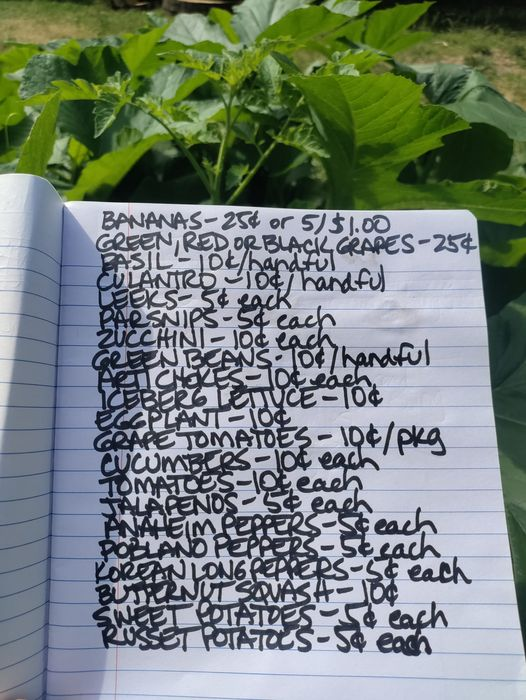 BANANAS - 25¢ or 5/$1.00
GREEN, RED OR BLACK GRAPES - 25¢
BASIL - 10¢/handful
CULANTRO - 10¢/handful
LEEKS - 5¢ each
PARSNIPS - 5¢ each
ZUCCHINI - 10¢ each
GREEN BEANS - 10¢/handful
ARTICHOKES - 10¢ each
ICEBERG LETTUCE - 10¢
EGGPLANT - 10¢
GRAPE TOMATOES - 10¢/pkg
CUCUMBERS - 10¢ each
TOMATOES - 10¢ each
JALAPENOS - 5¢ each
ANAHEIM PEPPERS - 5¢ each
POBLANO PEPPERS - 5¢ each
KOREAN LONG PEPPERS - 5¢ each
BUTTERNUT SQUASH - 10¢
SWEET POTATOES - 5¢ each
RUSSET POTATOES - 5¢ each